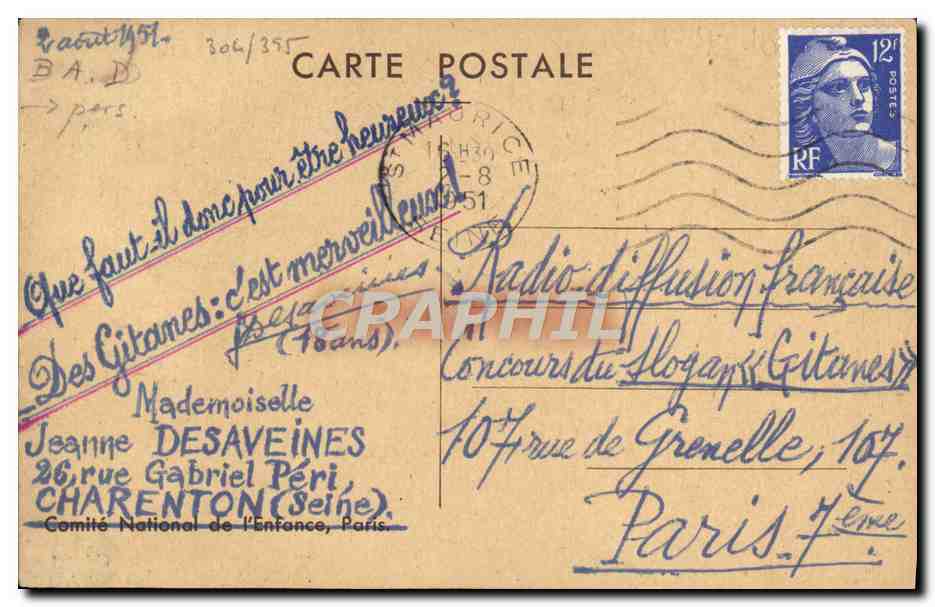 2 août 1951.
304/355
B A. D
→ pers.
CARTE POSTALE
12F
POSTES
RF
ST MAURICE
-8
51
SEINE
Que faut-il donc pour être heureux?
_Des Gitanes: c'est merveilleux!
Desaveines.
(18 ans).
Mademoiselle
Jeanne DESAVEINES
26, rue Gabriel Péri,
CHARENTON (Seine).
Comité National de l'Enfance, Paris.
Radio-diffusion française
Concours du Slogan «Gitanes»
107, rue de Grenelle, 107.
Paris_7ème
CRAPHIL